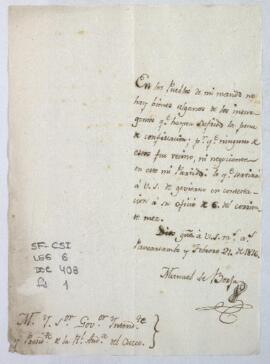 En los Pueblos de mi mando no
hay bienes algunos de los insur
gentes qe hayan sufrido la pena
de confiscacion; pr qe ninguno de
estos fue vecino, ni negociante
en este mi Partido. Lo qe
a V.S. de govierno en contesta
cion à su oficio de 6. del corrien
te mez.
Dios gũe à V.S. ms as
y Febrero 21. de 1816.
Manuel de
SF-CSI
LEG 6
DOC 408
fl 1
M. Y. Sor Govor Yntente
y Presidte de la Rl Audia del Cuzco.